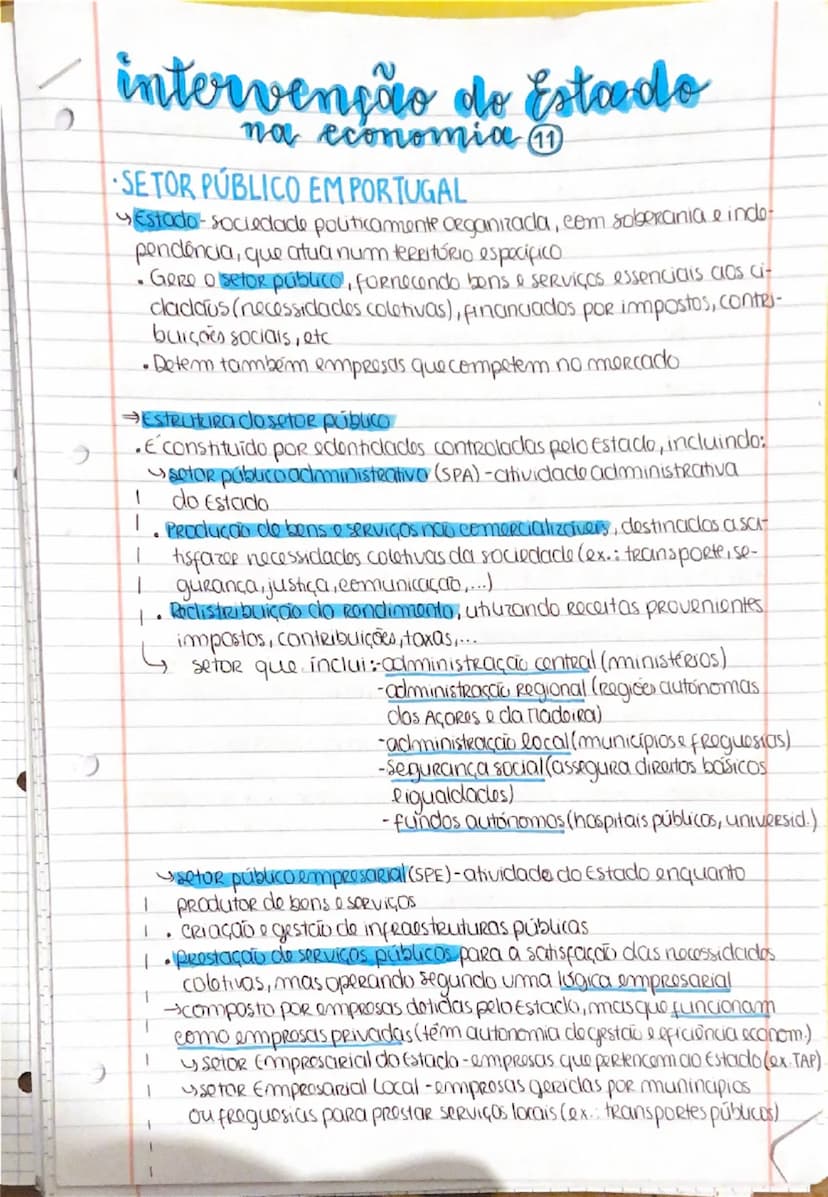 intervenção do Estado
na economia 11
· SETOR PÚBLICO EM PORTUGAL
↳ Estado - sociedade politicamente organizada, com soberania e inde-
pendência, que atua num território específico
• Gere o setor público, fornecendo bens e serviços essenciais aos ci-
dadãos (necessidades coletivas), financiados por impostos, contri-
buições sociais, etc
• Detem também empresas que competem no mercado
⇒ Estrutura do setor público
• É constituído por edentidades controladas pelo Estado, incluindo:
↳ setor público administrativo (SPA) - atividade administrativa
do Estado
• Produção de bens e serviços não comercializáveis, destinados a sa-
tisfazer necessidades coletivas da sociedade (ex.: transporte, se-
gurança, justiça, comunicação, ...)
• Redistribuição do rendimento, utilizando receitas provenientes
impostos, contribuições, taxas, ...
↳ setor que inclui: - administração central (ministérios)
- administração regional (regiões autónomas
dos Açores e da Madeira)
- administração local (municípios e freguesias)
- segurança social (assegura direitos básicos
e igualdades)
- fundos autónomos (hospitais públicos, universid.)
↳ setor público empresarial (SPE) - atividade do Estado enquanto
produtor de bens e serviços
• criação e gestão de infraestruturas públicas
• Prestação de serviços públicos para a satisfação das necessidades
coletivas, mas operando segundo uma lógica empresarial
→ composto por empresas detidas pelo Estado, mas que funcionam
como empresas privadas (têm autonomia de gestão e eficiência econom.)
↳ setor Empresarial do Estado - empresas que pertencem ao Estado (ex. TAP)
↳ setor Empresarial Local - empresas geridas por munincipios
ou freguesias para prestar serviços locais (ex.: transportes públicos)